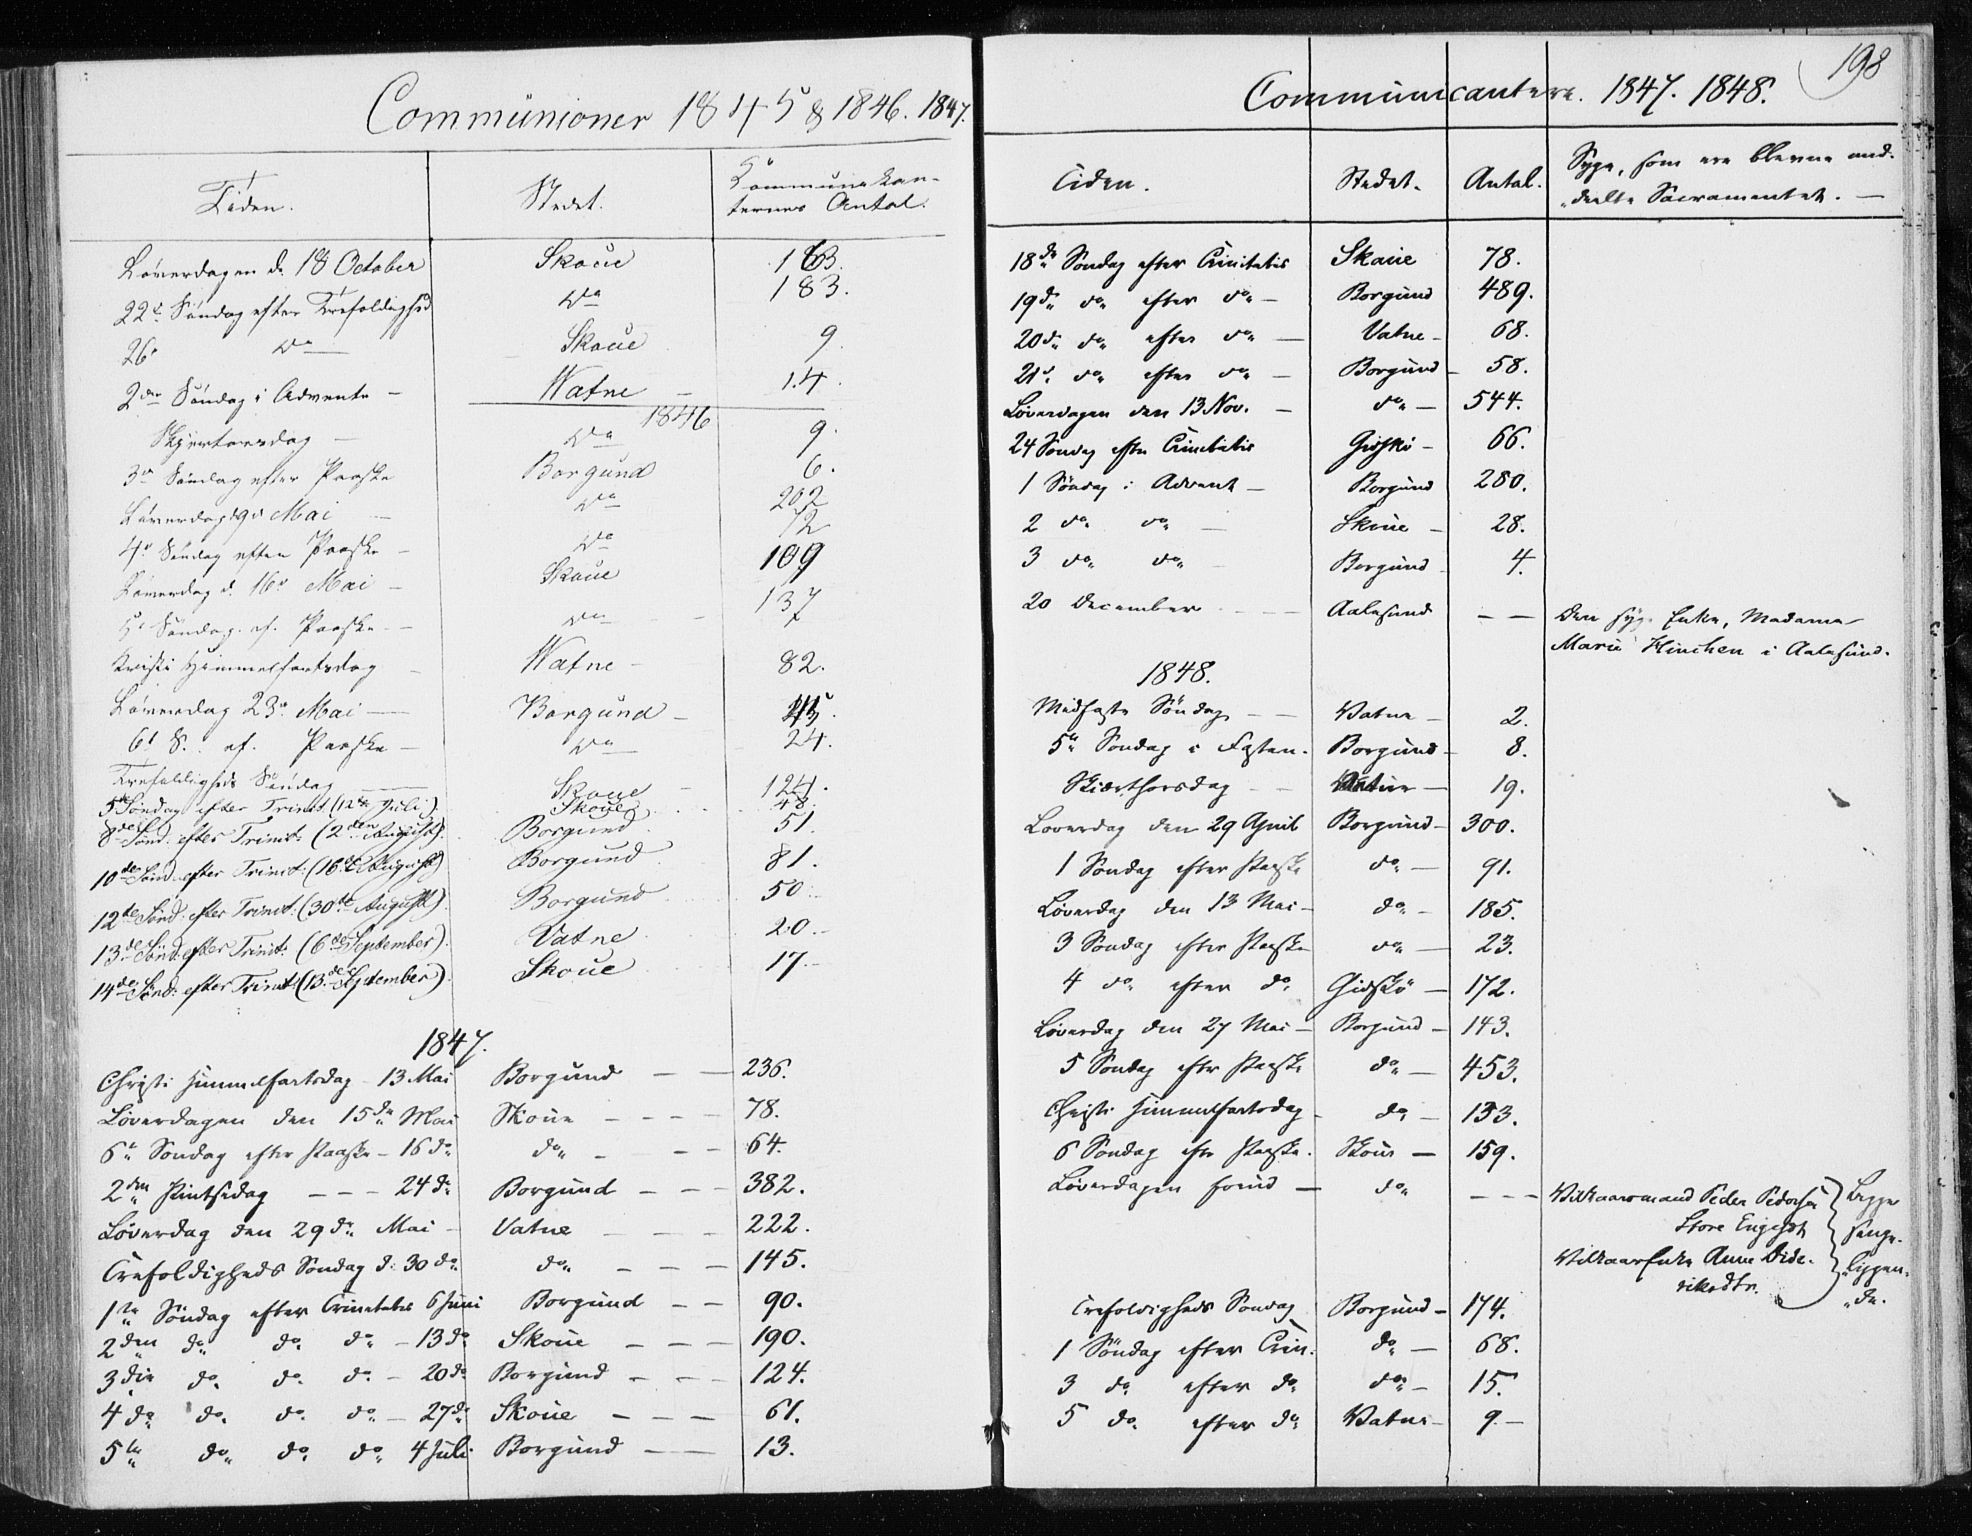 Communioner 1845 & 1846. 1847.
Tiden. Stedet. Kommunikan-
ternes Antal.
Löverdagen d. 18 October Skoue 163.
22d. Söndag efter Trefoldighed do 183.
26d do Skoue 9.
2den Söndag i Advente – Watne – 14.
1846
Skjertorsdag – do 9.
3de Söndag efter Paaske Borgund 6.
Löverdag 9de Mai – do 202
4de Söndag efter Paaske – do 72
Löverdag d. 16de Mai – Skoue 109
5te Söndag ef. Paaske – do – 137
Kristi Himmelfartsdag – Watne – 82.
Löverdag 23de Mai – Borgund –
6te S. ef. Paaske – do 24.
Trefoldigheds Söndag Skoue – 124.
5te Söndag efter Trinit. (12te Juli) Skoue 48.
8de Sönd. efter Trinit: (2den August). Borgund 51.
10de Sönd. efter Trinit: (16de August) Borgund 81.
12te Sönd: efter Trinit: (30te August). Borgund 50.
13de Sönd: efter Trinit: (6de September). Vatne 20.
14de Sönd: efter Trinit: (13de September). Skoue 17.
1847.
Christi Himmelfartsdag – 13 Mai Borgund – – 236.
Löverdagen den 15de Mai Skoue – – – 78.
6te Söndag efter Paaske – 16 do do – – – 64.
2den Pintsedag – – – 24 do Borgund – – – 382.
Löverdag den 29de Mai – Vatne – – – 222.
Trefoldigheds Söndag d. 30 do do – – – 145.
1te Söndag efter Trinitatis 6 Juni Borgund – – 90.
2den do do do – 13 do Skoue – – – 190.
3die do do do – 20 do Borgund – – – 124.
4de do do do – 27 do Skoue – – – 61.
5te do do do 4 Juli Borgund – – 13.
198
Communicantere. 1847. 1848.
Tiden. Stedet. Antal. Syge, som ere blevne med-
deelte Sacramentet. –
18de Söndag efter Trinitatis Skoue 78.
19de do efter do – Borgund 489.
20de do efter do – Vatne – 68.
21de do efter do – Borgund – 58.
Löverdagen den 13 Nov. – do – 544.
24 Söndag efter Trinitatis Gidskö – 66.
1 Söndag i Advent – Borgund 280.
2 do do – Skoue – 28.
3 do do – Borgund 4.
20 December – – – Aalesund – – Den syge Enke, Madame
Marie Hinchen i Aalesund.
1848.
Midfaste Söndag – – Vatne – 2.
5te Söndag i Fasten. Borgund – 8.
Skiærthorsdag – – Vatne – 19.
Löverdag den 29 April Borgund – 300.
1 Söndag efter Paaske do – 91.
Löverdag den 13 Mai – do – 185.
3 Söndag efter Paaske do – 23.
4 do efter do Gidskö – 172.
Löverdag den 27 Mai – Borgund – 143.
5 Söndag efter Paaske do – 453.
Christi Himmelfartsdag – do – 133.
6 Söndag efter Paaske. Skoue – 159.
Löverdagen forud – do – – – Vilkaarsmand Peder Pedersen Begge
Store senge-
Vilkaarsenke Anne Dide- liggen-
riksdtr. de.
Trefoldigheds Söndag Borgund – 174.
1 Söndag efter Trin. do – 68.
3 do efter do do – 15.
5 do efter do Vatne – 9 –